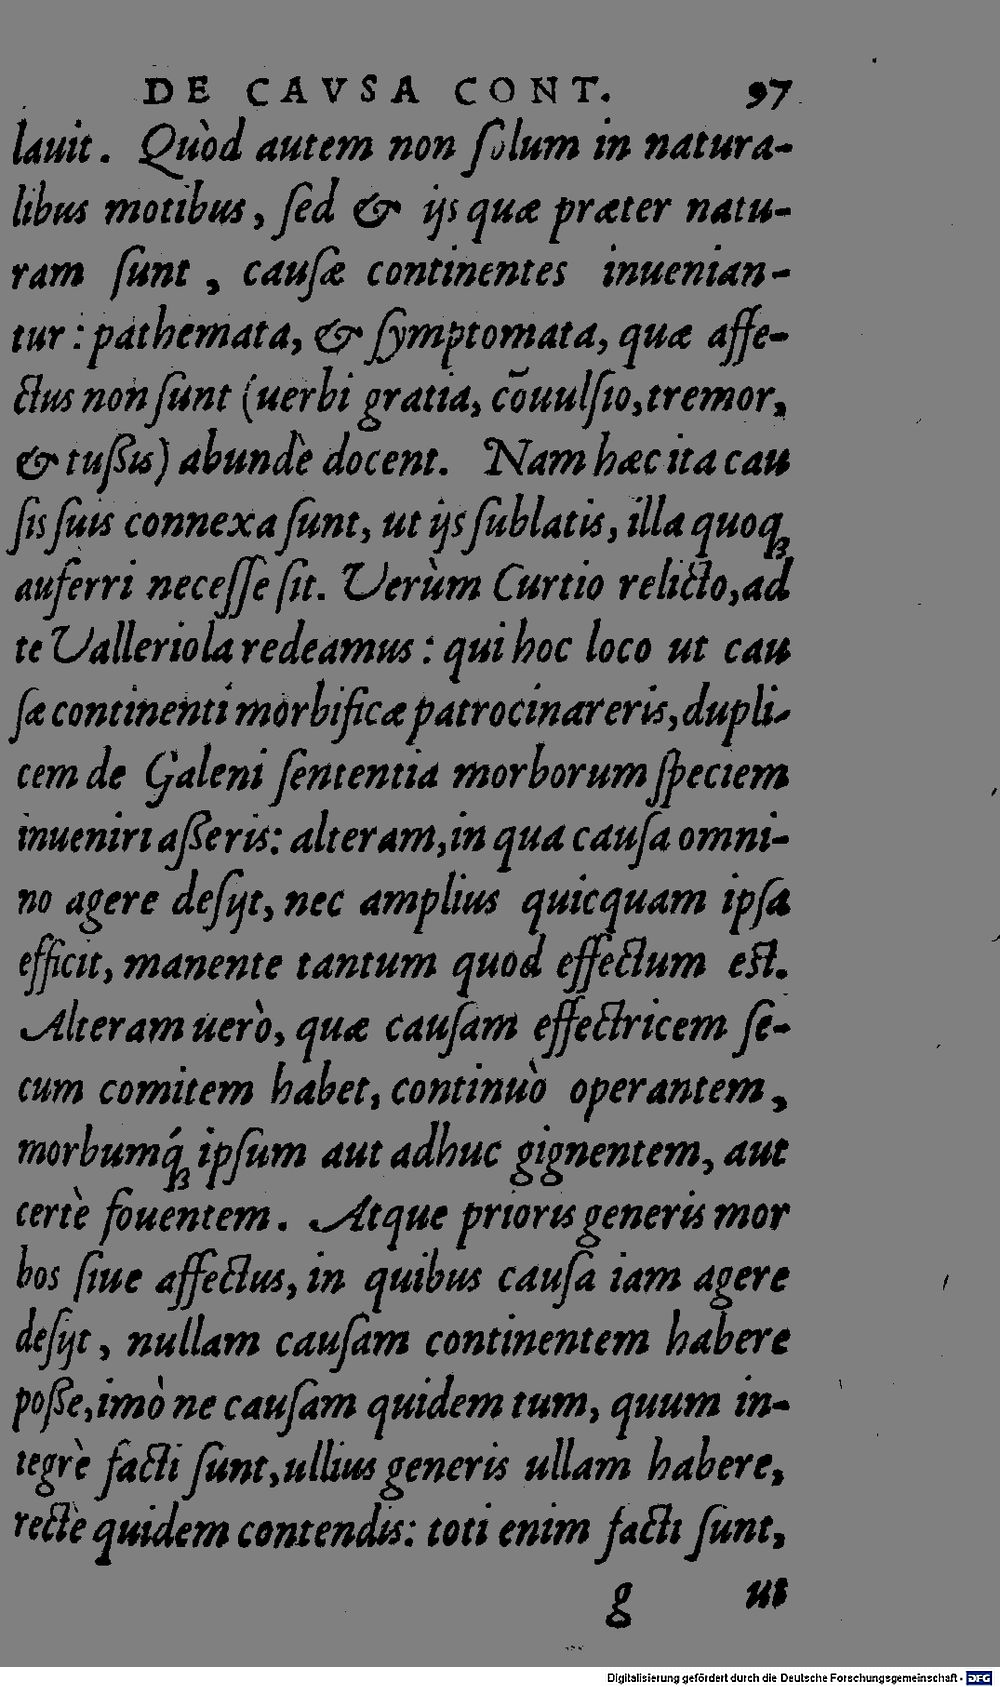 DE CAVSA CONT. 97
lauit. Quòd autem non ſolum in natura-
libus motibus, ſed & ijs quæ præter natu-
ram ſunt, cauſæ continentes inuenian-
tur: pathemata, & ſymptomata, quæ affe-
ctus non ſunt (uerbi gratia, cōuulſio, tremor,
& tußis) abundè docent. Nam hæc ita cau
ſis ſuis connexa ſunt, ut ijs ſublatis, illa quoqꝫ
auferri neceſſe ſit. Verùm Curtio relicto, ad
te Valleriola redeamus: qui hoc loco ut cau
ſæ continenti morbificæ patrocinareris, dupli-
cem de Galeni ſententia morborum ſpeciem
inueniri aßeris: alteram, in qua cauſa omni-
no agere deſijt, nec amplius quicquam ipſa
efficit, manente tantum quod effectum eſt.
Alteram uerò, quæ cauſam effectricem ſe-
cum comitem habet, continuò operantem,
morbumq́ꝫ ipſum aut adhuc gignentem, aut
certè fouentem. Atque prioris generis mor
bos ſiue affectus, in quibus cauſa iam agere
deſijt, nullam cauſam continentem habere
poße, imò ne cauſam quidem tum, quum in-
tegrè facti ſunt, ullius generis ullam habere,
rectè quidem contendis: toti enim facti ſunt,
g ut
Digitalisierung gefördert durch die Deutsche Forschungsgemeinschaft - DFG